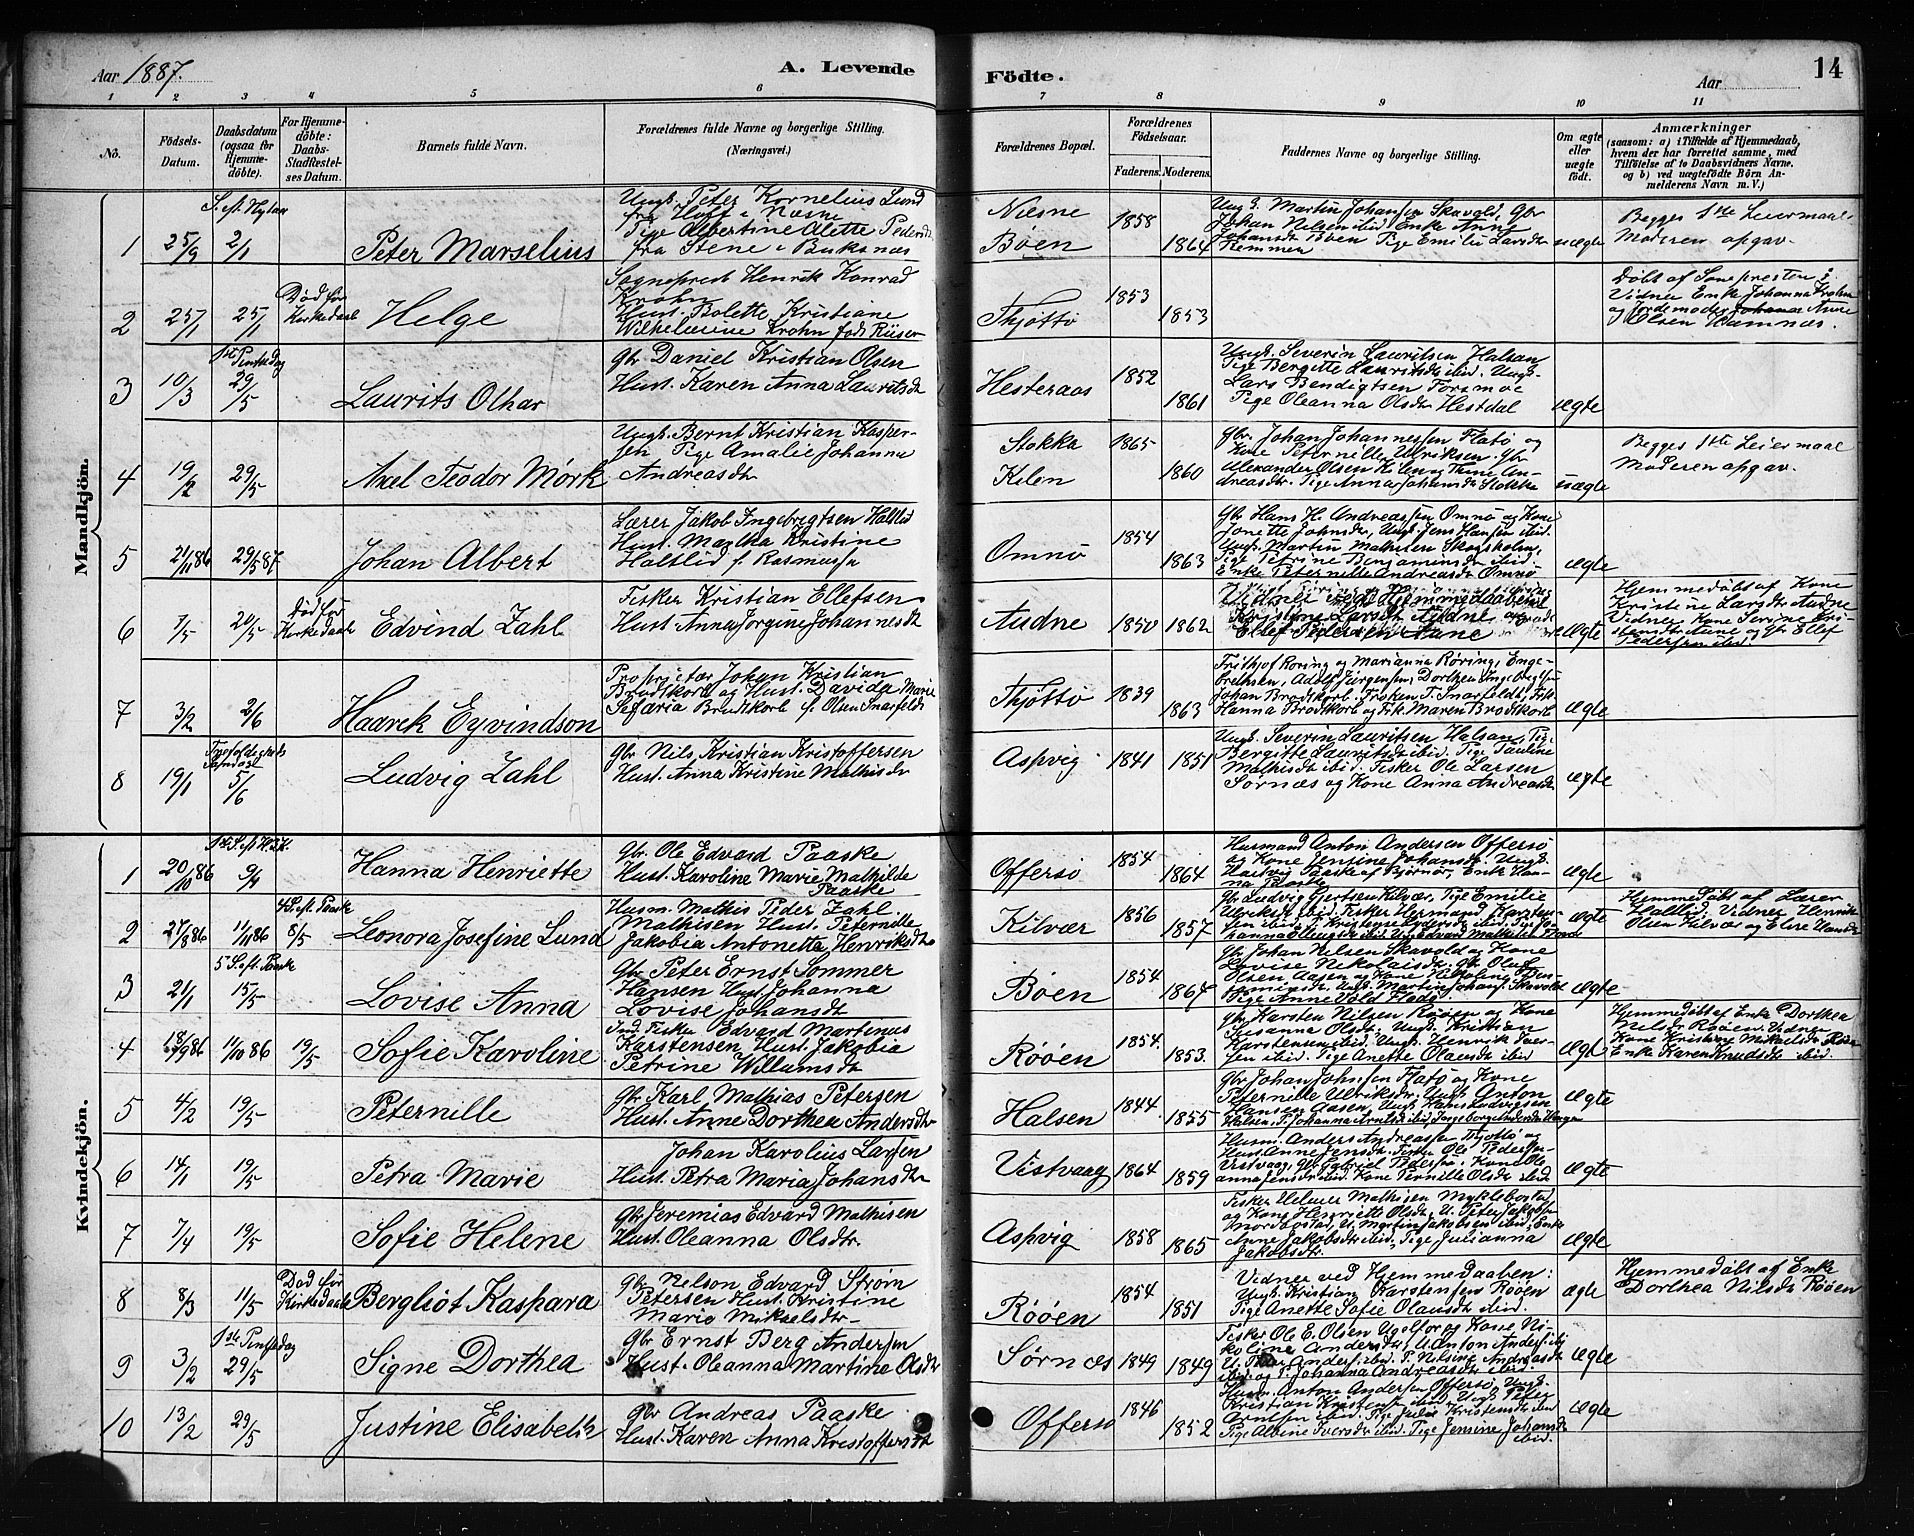 Aar 1887.
A. Levende
Födte.
Aar
14
1 2 3 4 5 6 7 8 9 10 11
No.
Födsels-
Datum.
Daabsdatum
(ogsaa for
Hjemme-
döbte).
For Hjemme-
döbte:
Daabs-
Stadfæstel-
ses Datum.
Barnets fulde Navn.
Forældrenes fulde Navne og borgerlige Stilling.
(Næringsvei.)
Forældrenes Bopæl.
Forældrenes
Födselsaar.
Faderens. Moderens.
Faddernes Navne og borgerlige Stilling.
Om ægte
eller
uægte
födt.
Anmærkninger
(saasom: a) i Tilfælde af Hjemmedaab,
hvem der har forrettet samme, med
Tilföielse af to Daabsvidners Navne,
og b) ved uægtefödte Börn An-
melderens Navn m. V.)
Mandkjön.
1
25/9
2/1
Peter Marselius
Ungk. Peter Kornelius Lund
fra Hoff i Næsne
Pige Albertine Alette Pedersdt
fra Stene i Buksnæs
Næsne
Bøen
1858
1864
Ungk. Martin Johansen Skavold, Gbr
Johan Nilsen ibid Enke Anne
Johansdt Bøen Pige Emilie Larsdt
Hemmen
uægte
Begges 1ste Leiermaal
Moderen opgav.
2
25/1
25/1
Død før
Kirkedaab
Helge
Sogneprest Henrik Konrad
Krohn
Hust. Bolette Kristiane
Wilhelmine Krohn født Riiser
Thjøttø
1853
1853
Døbt af Sognepresten;
Vidner Enke Johanna Krohn
og Jordemoder Anne
Olsen Hamnæs.
3
10/3
1ste Pintsedag
29/5
Laurits Othar
Gbr Daniel Kristian Olsen
Hust. Karen Anna Lauritsdt
Hesteraas
1852
1861
Ungk. Severin Lauritsen Halsan
Pige Bergitte Lauritsdt ibid. Ungk.
Lars Bendigtsen Forsmoe
Pige Oleanna Olsdt Hestdal
ægte
4
19/2
29/5
Axel Teodor Mørk
Ungk. Bernt Kristian Kasper-
sen Pige Amalie Johanna
Andreasdt
Stokka
Kelen
1865
1860
Gbr. Johan Johannessen Flatø og
Kone Peternille Ulriksen. Gbr
Alexander Olsen Kelen og Trine An-
dreasdt. Pige Anna Johansdt Stokka
uægte
Begges 1ste Leiermaal
Moderen opgav.
5
21/11 86
29/5 87
Johan Albert
Lærer Jakob Ingebrigtsen Haltlid
Hust. Martha Kristine
Haltlid f. Rasmussen
Omnø
1854
1863
Gbr Hans H. Andreassen Omnø og Kone
Jonette Johnsdt, Ungk. Jens Hansen ibid.
Ungk. Martin Mathisen Skogsholm,
Pige Petrine Benjaminsdt ibid.
Enke Peternille Andreasdt Omnø
ægte
6
7/5
20/5
Død før
Kirkedaab
Edvind Zahl
Fisker Kristian Ellefsen
Hust. Anna Jørgine Johannesdt
Audne
1850
1862
Ellef Pedersen Aune
ægte
Hjemmedøbt af Kone
Kristine Larsdt Audne
Vidner Kone Serine Kri-
stensdt Aune og Gbr Ellef
Pedersen ibid.
7
3/2
2/6
Haarek Eyvindson
Proprietær Johan Kristian
Brodtkorb og Hust. Davida Marie
Sefæria Brodtkorb f. Olsen Snarfeldt
Thjøttø
1839
1863
Frithjof Roring og Marianna Røring, Enge-
bretsen, Adolf Jürgensen, Dorthea Ingebrigtsen
Johan Brodtkorb. Frøken T. Snarfeldt, Frk.
Hanna Brodtkorb og Frk. Maren Brodtkorb
ægte
8
19/1
Trefoldigheds
Søndag
5/6
Ludvig Zahl
Gbr. Nils Kristian Kristoffersen
Hust. Anna Kristine Mathisdt
Aspvig
1841
1851
Ungk. Severin Lauritsen Halsan, Pig.
Bergitte Lauritsdt ibid. Pige Pauline
Mathisdt ibid. Fisker Ole Larsen
Sørnæs og Kone Anna Andreasdt
ægte
Kvindekjön.
1
20/10 86
9/4
Hanna Henriette
Gbr. Ole Edvard Paaske
Hust. Karoline Marie Mathilde
Paaske
Offersø
1854
1864
Husmand Anton Andersen Offersø
og Kone Jensine Johansdt. Ungk.
Hartvig Paaske af Bjørnør, Enke Han-
na Paaske
ægte
2
27/8 86
11/11 86
4 S. eft. Paask
8/5
Leonora Josefine Lund
Husm. Mathis Peder Zahl
Mathisen Hust. Peternille
Jakobia Antonetta Henriksdt
Kilvær
1856
1857
Gbr Ludvig Gjertsen Kilvær, Pige Emilie
Ulriksdt ibid. Fisker Hermand Karsten-
ægte
Hjemmedøbt af Lærer
Haltlid, Vidner Henrik
Olsen Kilvær og Elise Hansdt
3
21/1
5 S. eft. Paask
15/5
Lovise Anna
Gbr Peter Ernst Sommer
Hansen Hust Johanna
Lovise Johansdt
Bøen
1854
1864
Gbr Johan Nilsen Skavold og Kone
Lovise Nikolaisdt. Gbr Oluf
Olsen Aasen og Kone Nikoline Ben-
jaminsdt. Ungk. Martin Johans. Skavold
Pige Anne Vold Flatø
ægte
4
18/9 86
11/10 86
19/5
Sofie Karoline
Ind. Fisker Edvard Martinus
Karstensen Hust. Jakobia
Petrine Willumsdt
Røøen
1854.
1853.
Gbr Karsten Nilsen Røøen og Kone
Susanna Olsdt. Ungk. Kristian
Karstensen ibid. Ungk. Henrik Iver-
sen ibid. Pige Anette Olausdt ibid
ægte
Hjemmedøbt af Enke Dorthea
Nilsdt Røøen. Vidner
Kone Kristine Mikaelsdt Røøen
Enke Karen Knudsdt ibid.
5
4/2
19/5
Peternille
Gbr Karl Mathias Petersen
Hust. Anne Dorthea Andersdt
Halsen
1844
1855
Gbr Johan Johnsen Flatø og Kone
Peternille Ulriksdt. Ungk Anton
Hansen Aasen, Ungk Hans Ludvigsen
ægte
6
14/1
19/5
Petra Marie
Johan Karolius Larsen
Hust. Petra Maria Johansdt
Vistvaag
1864
1859
Husm. Anders Andreassen Thjøttø og
Hust. Anne Jensdt. Fisker Ole Pedersen
Vistvaag, Gbr Gabriel Pedersen. Kone Ole-
anna Jensdt ibid. Kone Pernille Olsdt ibid
ægte
7
7/4
19/5
Sofie Helene
Gbr Jeremias Edvard Mathisen
Hust. Oleanna Olsdt.
Aspvig
1858
1865
Fisker Helmer Mathisen Myklebostad
og Kone Henriette Olsdt, U. Peter Jakobsen
Mordbostad, U. Martin Jakobsen ibid, Enke
Anne Jakobsdt ibid, Pige Julianna
Jakobsdt.
ægte
8
8/3
11/5
Død før
Kirkedaab
Bergliot Kaspara
Gbr Nelson Edvard Strøm
Petersen Hust. Kristine
Marie Mikaelsdt.
Røøen
1854
1851
Vidner ved Hjemmedaaben:
Ungk. Kristian Karstensen Røøen
Pige Anette Sofie Olausdt ibid.
ægte
Hjemmedøbt af Enke
Dorthea Nilsdt Røøen
9
3/2
1ste Pintsedag
29/5
Signe Dorthea
Gbr Ernst Berg Andersen
Hust. Oleanna Martina Olsdt
Sørnæs
1849
1849
Fisker Ole E. Olsen Ugelfor og Kone Ni-
koline Andersdt, U. Anton Anders. ibid
ibid og P. Johanna Andreasdt ibid
ægte
10
13/2
29/5
Justine Elisabeth
Gbr Andreas Paaske
Hust. Karen Anna Kristoffersdt
Offersø
1846
1852
Husm. Anton Andersen Offersø, Ungk.
Pige Albine Iversdt ibid. Pige Jensine Johansdt
ibid.
ægte